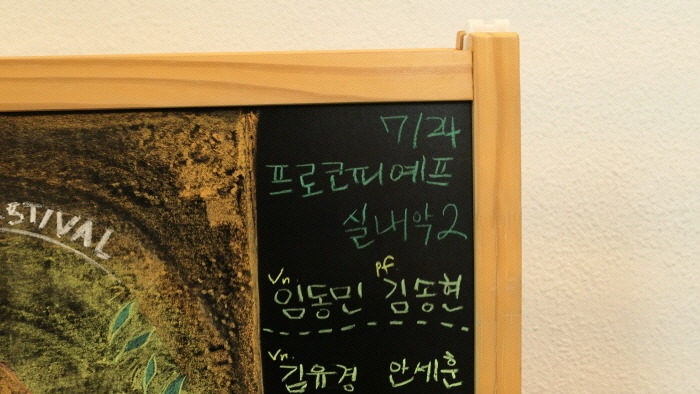 STIVAL
7/24
프로코피예프
실내악2
Vn. 임동민 pf. 김송현
Vn. 김유경 안세훈